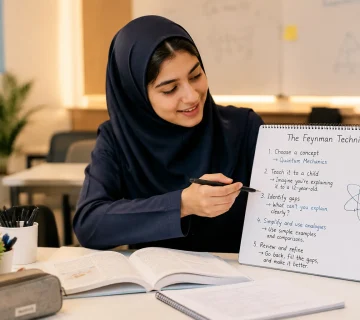 The Feynman Techni
1. Choose a concept
→ Quantum Mechanics
2. Teach it to a child
→ Imagine you're explaining
it to a 12-year-old.
3. Identify gaps
→ What can't you explain
clearly?
4. Simplify and use analogies
→ Use simple examples
and comparisons.
5. Review and refine
→ Go back, fill the gaps,
and make it better.